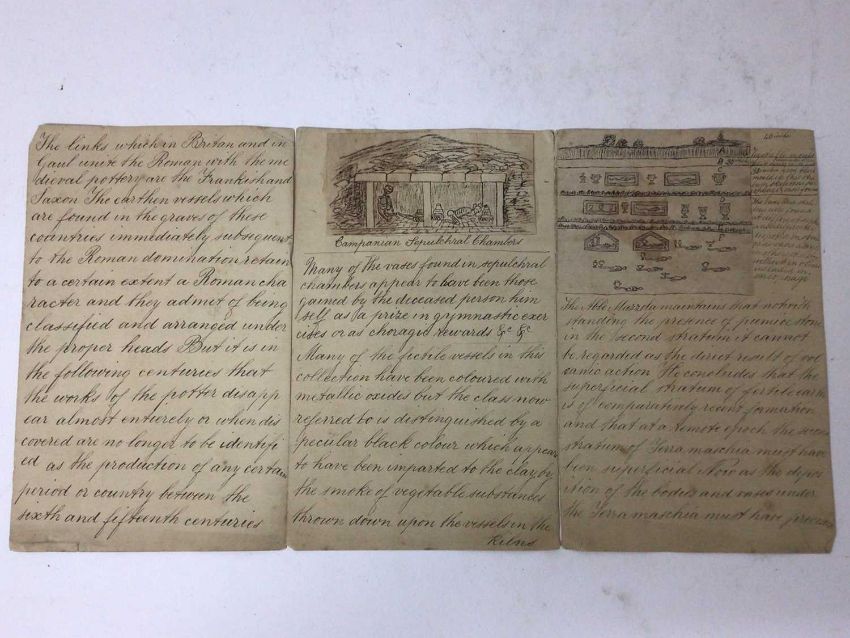 The links which in Britan and in
Gaul unite the Roman with the me
dieval pottery are the Frankish and
Saxon The earthen vessels which
are found in the graves of these
countries immediately subsequent
to the Roman domination retain
to a certain extent a Roman cha
racter and they admit of being
classified and arranged under
the proper heads But it is in
the following centuries that
the works of the potter disapp
ear almost entirely or when dis
covered are no longer to be identifi
ed as the production of any certain
period or country between the
sixth and fifteenth centuries
Campanian Sepulchral Chambers
Many of the vases found in sepulchral
chambers appear to have been those
gained by the deceased person him
self as a prize in gymnastic exer
cises or as choragic rewards &c &c
Many of the fictile vessels in this
collection have been coloured with
metallic oxides but the class now
referred to is distinguished by a
peculiar black colour which appears
to have been imparted to the clay by
the smoke of vegetable substances
thrown down upon the vessels in the
Kilns
A
B
The Abbe Mazzola maintains that notwith
standing the presence of pumice stone
in the second stratum it cannot
be regarded as the derict result of vol
canic action He concludes that the
superficial stratum of fertile earth
is of comparatively recent formation
and that at a remote epoch the second
stratum of Terra maschia must have
been superficial Now as the depos
ition of the bodies and vases under
the Terra maschia must have preceded